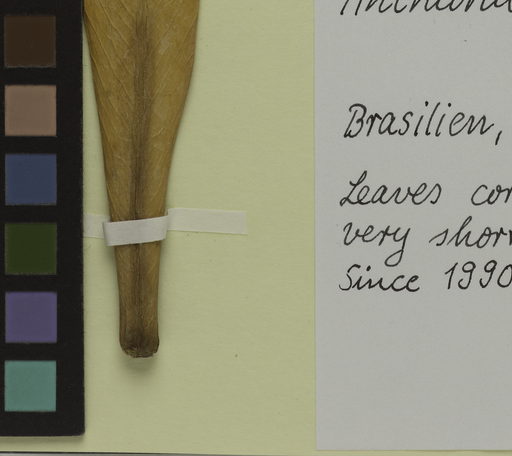 Brasilien,
Leaves
very
Since 1990